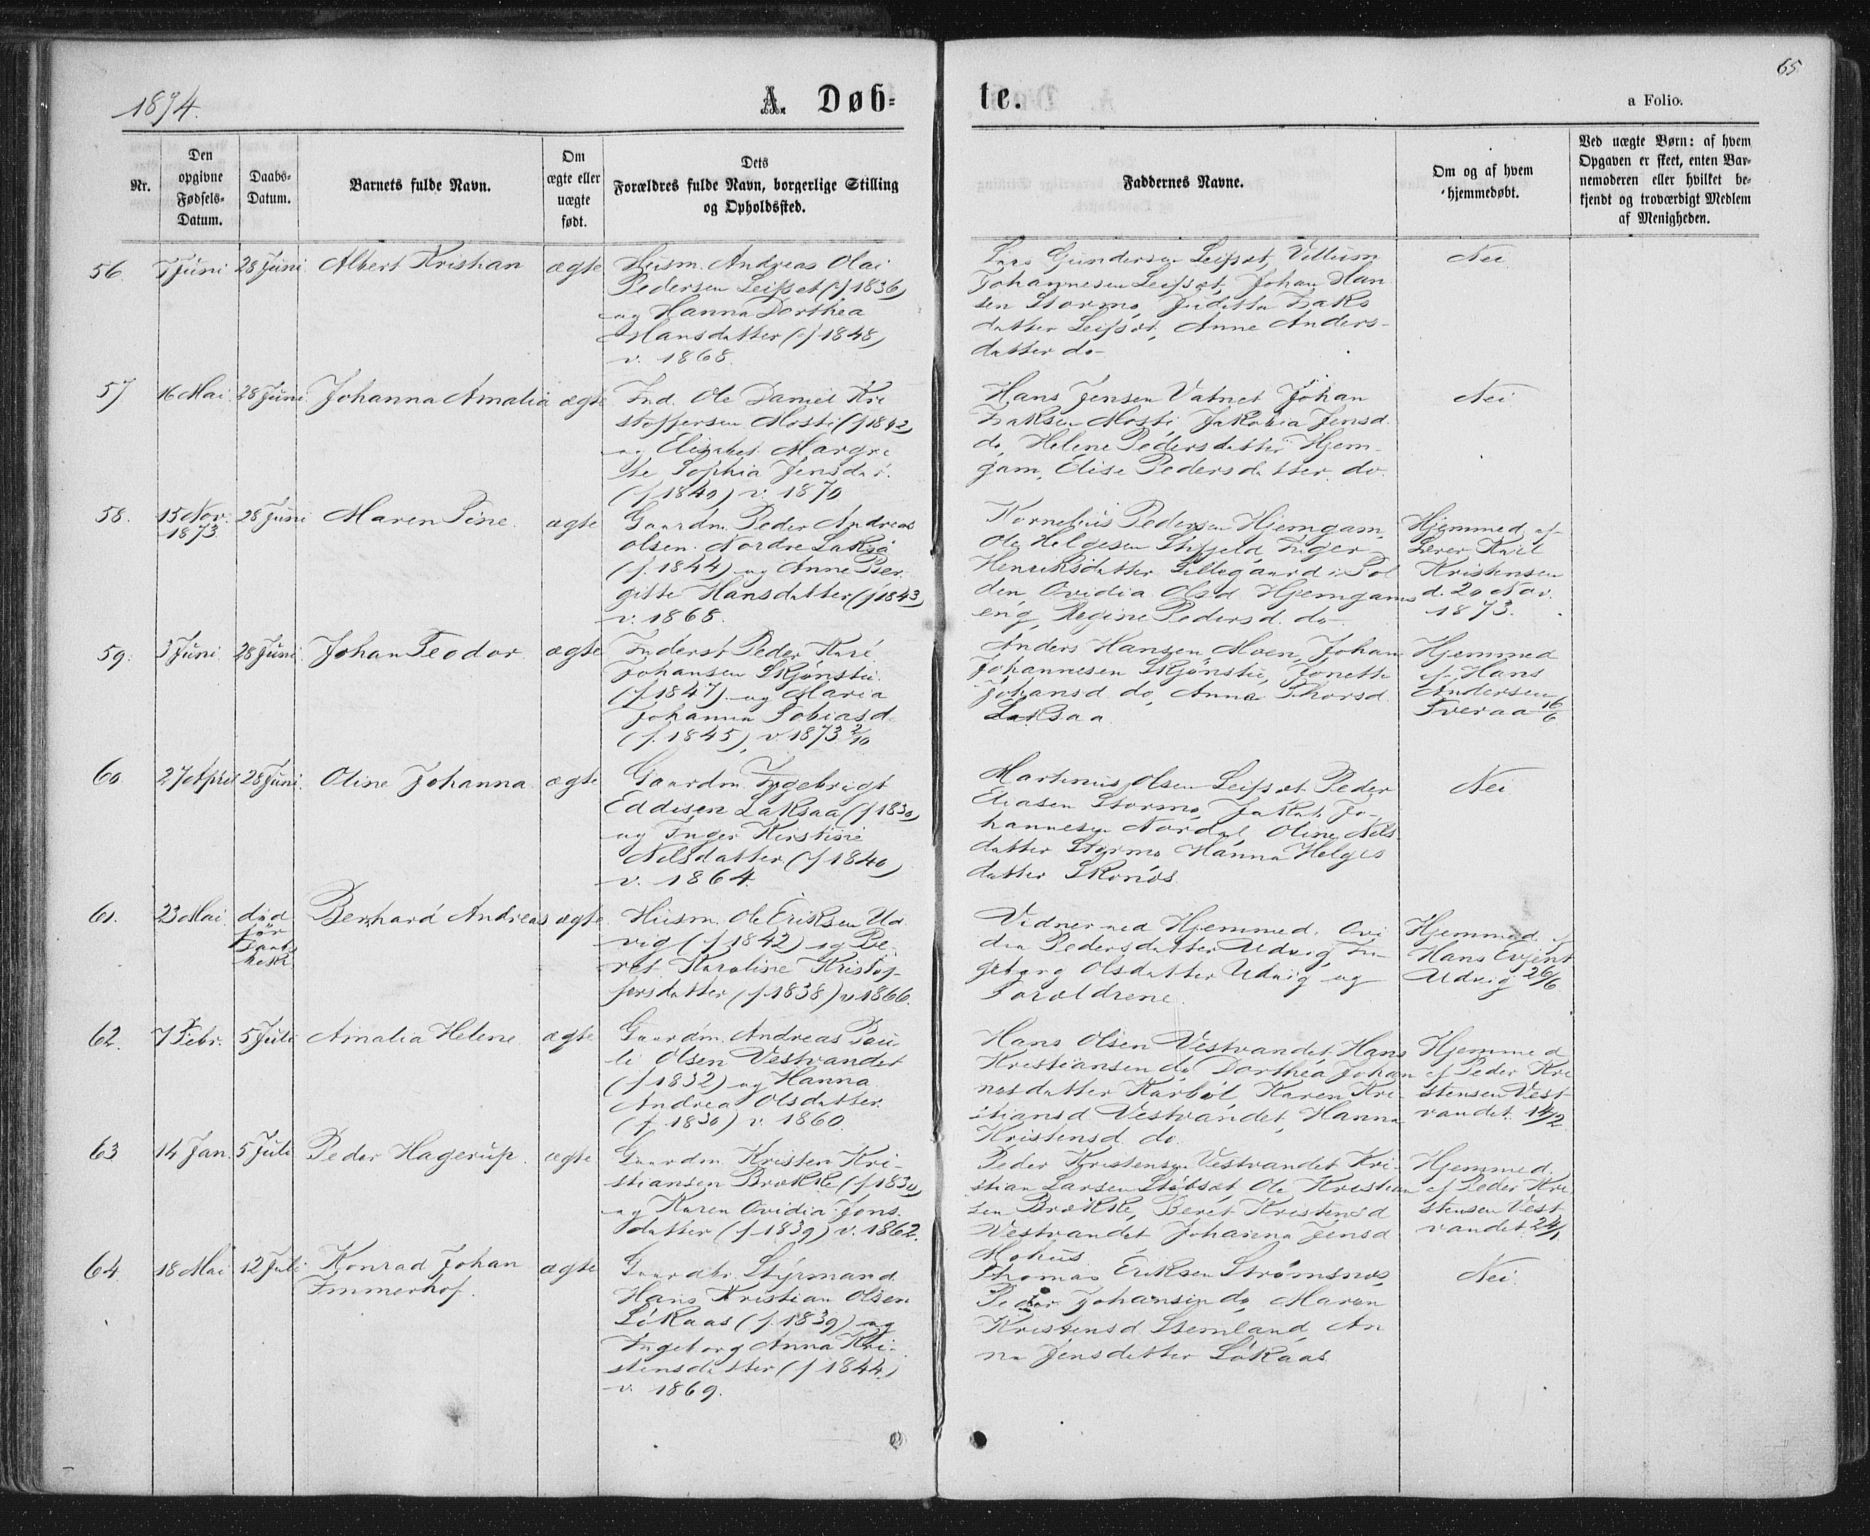 1874.
A. Døb-
te.
65
a Folio.
Nr.
Den
opgivne
Fødsels-
Datum.
Daabs-
Datum.
Barnets fulde Navn.
Om
ægte eller
uægte
født.
Dets
Forældres fulde Navn, borgerlige Stilling
og Opholdssted.
Faddernes Navne.
Om og af hvem
hjemmedøbt.
Ved uægte Børn: af hvem
Opgaven er skeet, enten Bar-
nemoderen eller hvilket be-
kjendt og troværdigt Medlem
af Menigheden.
56. 7 Juni 28 Juni Albert Kristian ægte
Husm. Andreas Olai
Pedersen Leifset (f 1836)
og Hanna Dorthea
Hansdatter (f 1848)
v. 1868.
Lars Gundersen Leifset, Villum
Johannesen Leifset, Johan Han
sen Stormo, Juditha Isaks
datter Leifset, Anne Anders-
datter do
Nei
57 16 Mai 28 Juni Johanna Amalia ægte
Ind. Ole Daniel Kri
stoffersen Mosti (f 1842)
og Elisabet Margre
te Sophia Jensdat.
(f 1840) v. 1870
Hans Jensen Vatnet Johan
Isaksen Mosti, Jakobia Jensd.
do, Helene Pedersdatter Hjem-
gam, Elise Pedersdatter do
Nei
58. 15 Nov. 1873 28 Juni Maren Pine ægte
Gaardm. Peder Andreas
Olsen Nordre Laksaa
(f. 1844) og Anne Ber
gitte Hansdatter (f 1843)
v. 1868.
Kornelius Pedersen Hjemgam,
Ole Helgesen Inger
Henriksdatter Lillegaard i Sol
den, Ovidia Olsd Hjemgams
eng, Regine Pedersd. do
Hjemmed af
Lærer Karl
Kristensen
d. 20 Nov.
1873.
59. 3 Juni 28 Juni Johan Teodor ægte
Inderst Peder Karé
Johansen Skjønstu
(f 1847) og Maria
Johanna Tobiasd.
(f. 1845), v. 1873 2/10
Anders Hansen Moen, Johan
Johannesen Skjønstu, Jonetta
Johansd. do, Anna Thorsd.
Laksaa
Hjemmed
af Hans
Andersen
Tveraa 16/6
60. 27 April 28 Juni Oline Johanna ægte
Gaardm. Ingebrigt
Eddisen Laksaa (f 1830)
og Inger Kirstine
Nilsdatter (f 1840)
v. 1864.
Martinus Olsen Leifset Peder
Eliasen Stormo, Jakob Jo-
hannesen Nordal, Oline Nils-
datter Stormo Hanna Helges
datter Skonos
Nei
61. 23 Mai død
før
Daabs
bekr. Bernhard Andreas ægte
Husm. Ole Eriksen Ud
vig (f 1842) og Be
ret Karoline Kristof
fersdatter (f 1838) v 1866.
Vidner ved Hjemmed. Ovi
dia Pedersdatter Udvig, In
geborg Olsdatter Udvig og
Forældrene.
Hjemmed. af
Hans Evjent
Udvig 26/6
62. 7 Febr. 5 Juli Amalia Helene ægte
Gaardm. Andreas Pau
li Olsen Vestvandet
(f 1832) og Hanna
Andrea Olsdatter
(f. 1830) v. 1860.
Hans Olsen Vestvandet, Hans
Kristiansen do, Dorthea Johan
nesdatter Karbøl, Karen Kri-
stiansd Vestvandet, Hanna
Kristensd. do.
Hjemmed
af Peder Kri
stensen Vest
vandet 14/2
63 14 Jan. 5 Juli Peder Hagerup ægte
Gaardm. Kristen Kri-
stiansen Brække (f 1830)
og Karen Ovidia Jons
datter (f 1839) v. 1862.
Peder Kristensen Vestvandet Kri-
stian Larsen Støbset Ole Kristian
sen Brække, Beret Kristensd
Vestvandet Johanna Jensd
Mohus
Hjemmed.
af Peder Kri
stensen Vest
vandet 24/1
64 18 Mai 12 Juli Konrad Johan
Immerhof. ægte
Gaardbr. Styrmand
Hans Kristian Olsen
Løkaas (f. 1839) og
Ingeborg Anna Kri-
stensdatter (f 1844)
v. 1869.
Thomas Eriksen Strømsnes,
Peder Johansen do, Maren
Kristensd Stemland, An
na Jensdatter Løkaas
Nei